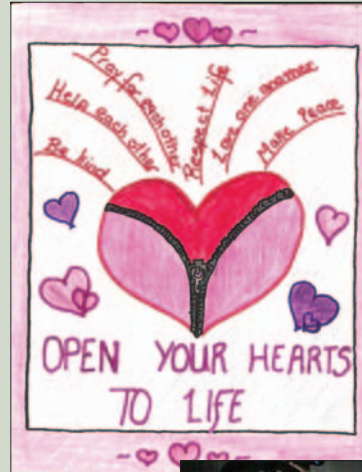 Be kind
Help each other
Pray for each other
Respect Life
Love one another
Make Peace
OPEN YOUR HEARTS
TO LIFE